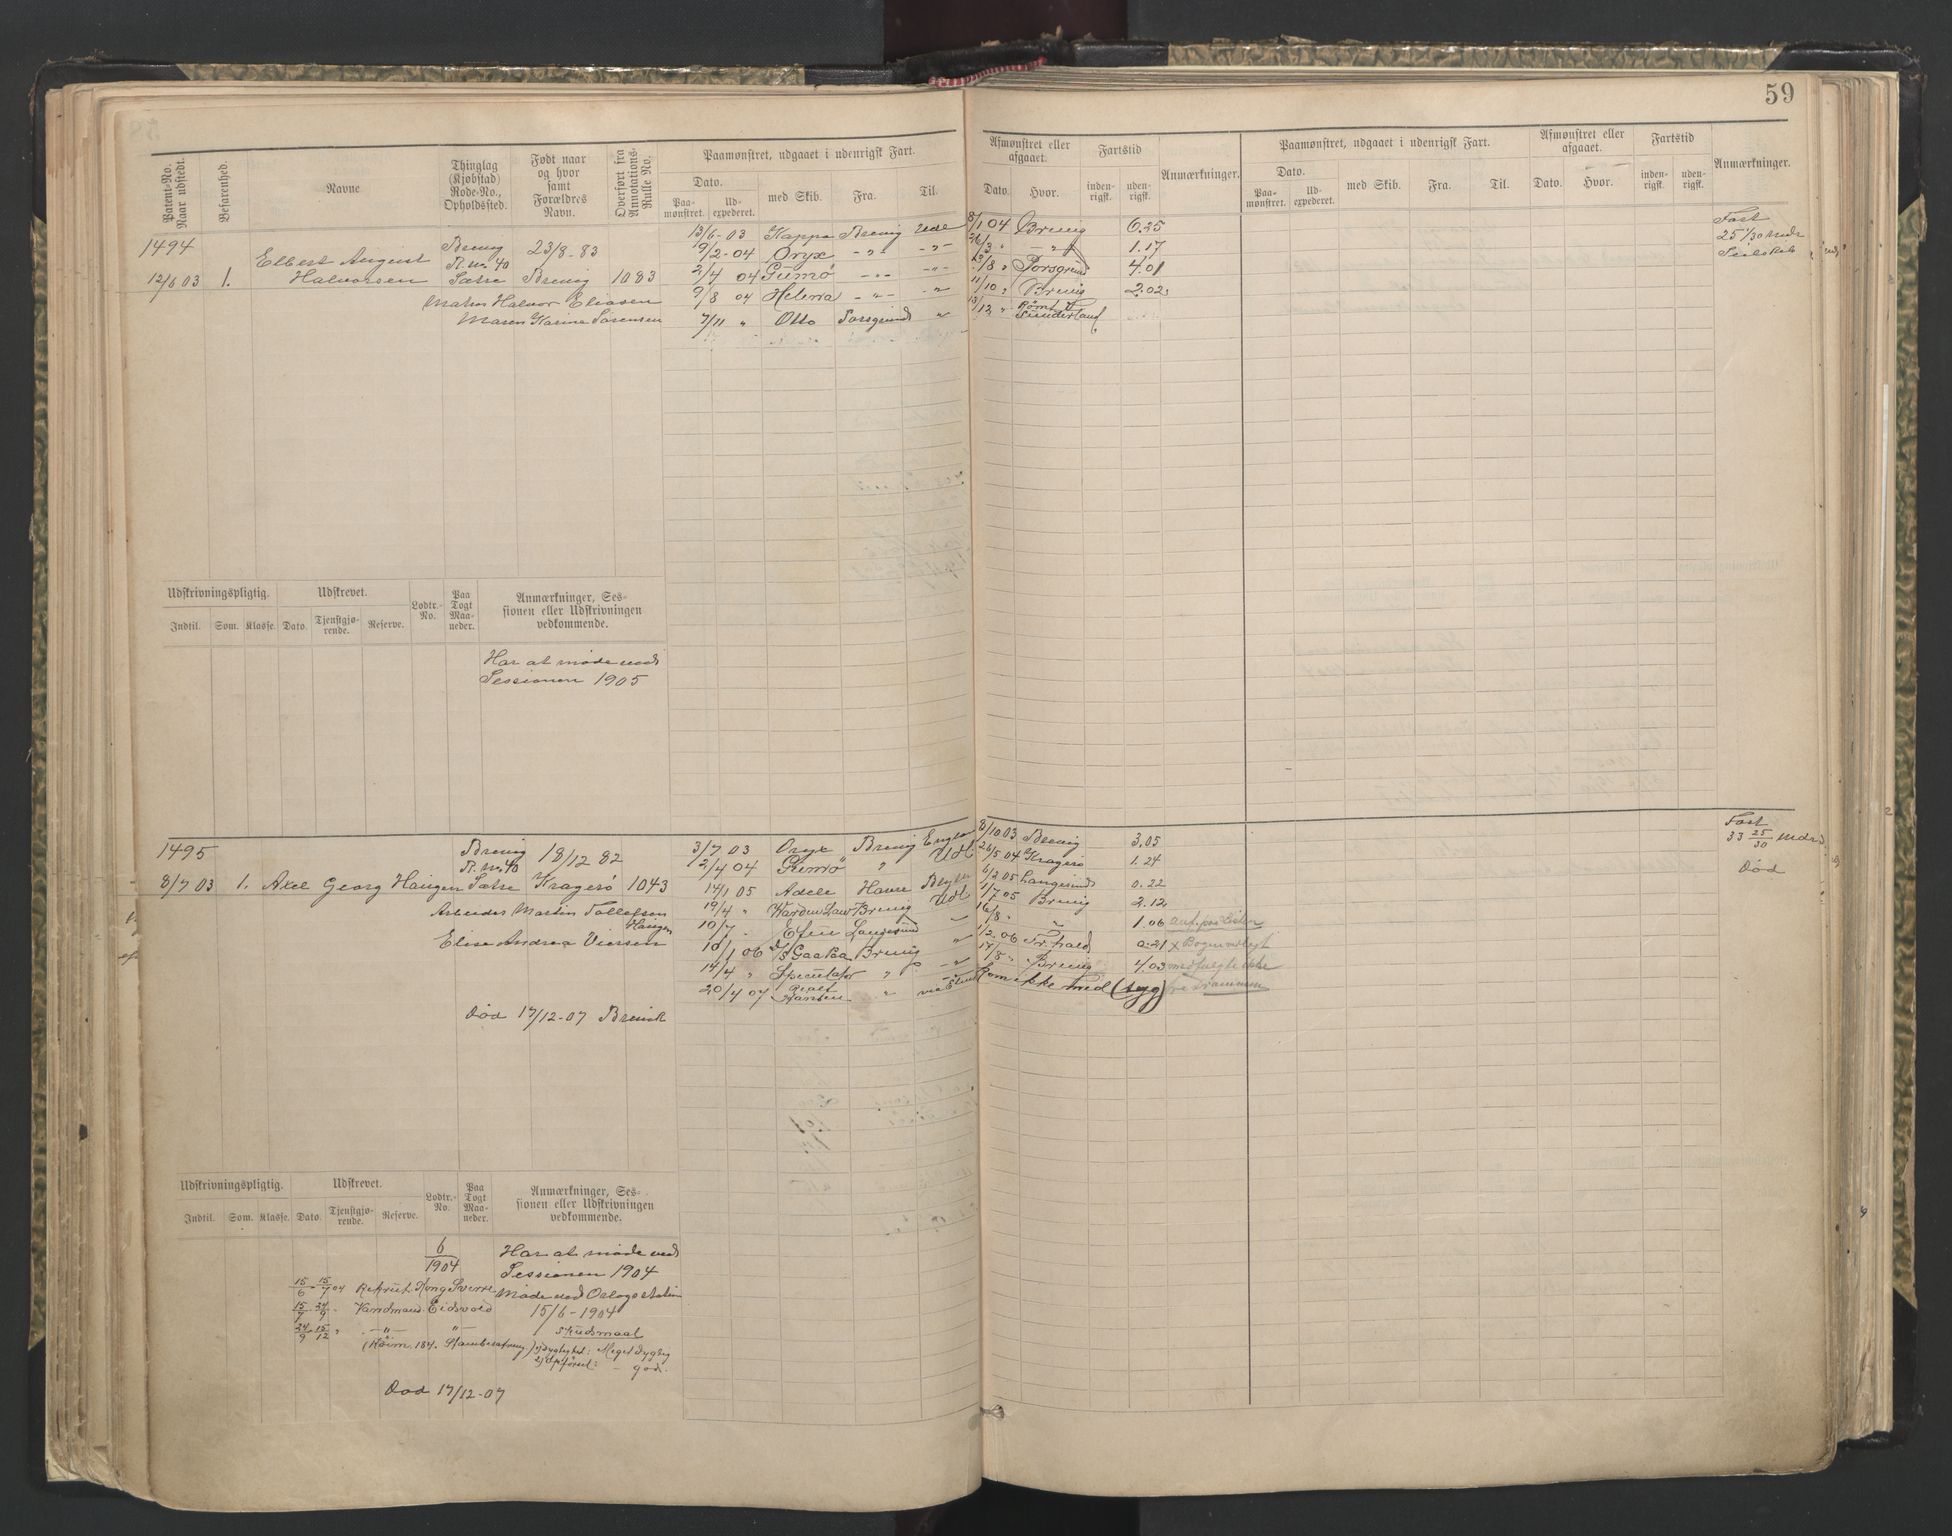 59
Patent-No. Naar udstedt.
Befarenhed.
Navne
Thinglag (Kjøbstad) Rode-No., Opholdssted.
Født naar og hvor samt Forældres Navn.
Overført fra Annotations-Rulle No.
Paamønstret, udgaaet i udenrigsk Fart.
Dato.
Paa-mønstret.
Ud-expederet.
med Skib.
Fra.
Til.
Afmønstret eller afgaaet.
Dato.
Hvor.
Fartstid
inden-rigsk.
uden-rigsk.
Anmærkninger.
Paamønstret, udgaaet i udenrigsk Fart.
Dato.
Paa-mønstret.
Ud-expederet.
med Skib.
Fra.
Til.
Afmønstret eller afgaaet.
Dato.
Hvor.
Fartstid
inden-rigsk.
uden-rigsk.
Anmærkninger.
1494
12/6 03 1. Elbert August Halvorsen
Brevig R. No. 40 Sætre
23/8-83 Brevig 1083
Halvor Eliasen
Maren Karine Sørensen
13/6-03 Kappa Brevig Udl 8/1 04 Brevig 6.25
9/2-04 Oryx -"- -"- 26/3 " -"- 1.17
2/4 04 Gumø -"- -"- /8 " Porsgrund 4.01
9/8 04 Helena -"- " 11/10 " Brevig 2.02
7/11 " Otto Porsgrund " 13/12 " Rømt Sunderland
Fart
25 1/30 Mdr
Seilskib
Udskrivningspligtig.
Indtil. Som. Klasse.
Udskrevet.
Dato. Tjenstgjø-rende. Reserve.
Lodtr.-No.
Paa Togt Maa-neder.
Anmærkninger, Ses-sionen eller Udskrivningen vedkommende.
Har at møde ved
Sessionen 1905
1495
8/7 03 1. Axel Georg Haugen
Brevig R. No. 40 Sætre
18/12 82 Kragerø 1043
Arbeider Martin Tollefsen Haugen
Elise Andrea Viersen
Død 17/12-07 Brevik
3/7 03 Oryx Brevig Engla 8/10 03 Brevig 3.05
2/4 04 Gumø " Udl 26/5 04 Kragerø 1.24
14/1 05 Adele Havre 6/2 05 Langesund 0.22
19/4 " Brevig Udl 1/7 05 Brevig 2.12
10/7 " Efeu Langesund " 16/8 " " 1.06
10/1 06 D/S Gaa Paa Brevig " 1/2 06 Fr.hald 0.21
14/4 " Speculator " " 17/8 " Brevig 4.03 medfulgte ikke
20/4 07 " Kom ikke med (syg)
Fart
33 25/30 Mdr
Død
Udskrivningspligtig.
Indtil. Som. Klasse.
Udskrevet.
Dato. Tjenstgjø-rende. Reserve.
Lodtr.-No.
Paa Togt Maa-neder.
Anmærkninger, Ses-sionen eller Udskrivningen vedkommende.
6/1904
Har at møde ved
Sessionen 1904
15/6-15/7 04 Rekrut Kong Sverre
Møde ved Orlogsstation
15/7-24/9 " Vandmand Eidsvold
15/6-1904
24/9-15/12 " -"- "
Skudsmaal
1) Dygtighed: Meget dygtig
2) Opførsel: - god.
Død 17/12-07